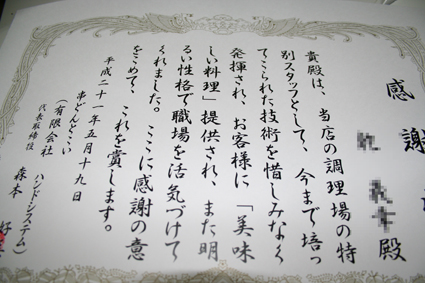 感謝
殿
貴殿は、当店の調理場の特
別スタッフとして、今まで培っ
てこられた技術を惜しみなく
発揮され、お客様に「美味
しい料理」提供され、また明
るい性格で職場を活気づけて
くれました。ここに感謝の意
をこめて、これを賞します。
平成二十一年五月十九日
串どんどこい
(有限会社 ハンドシステム)
代表取締役 森本 好